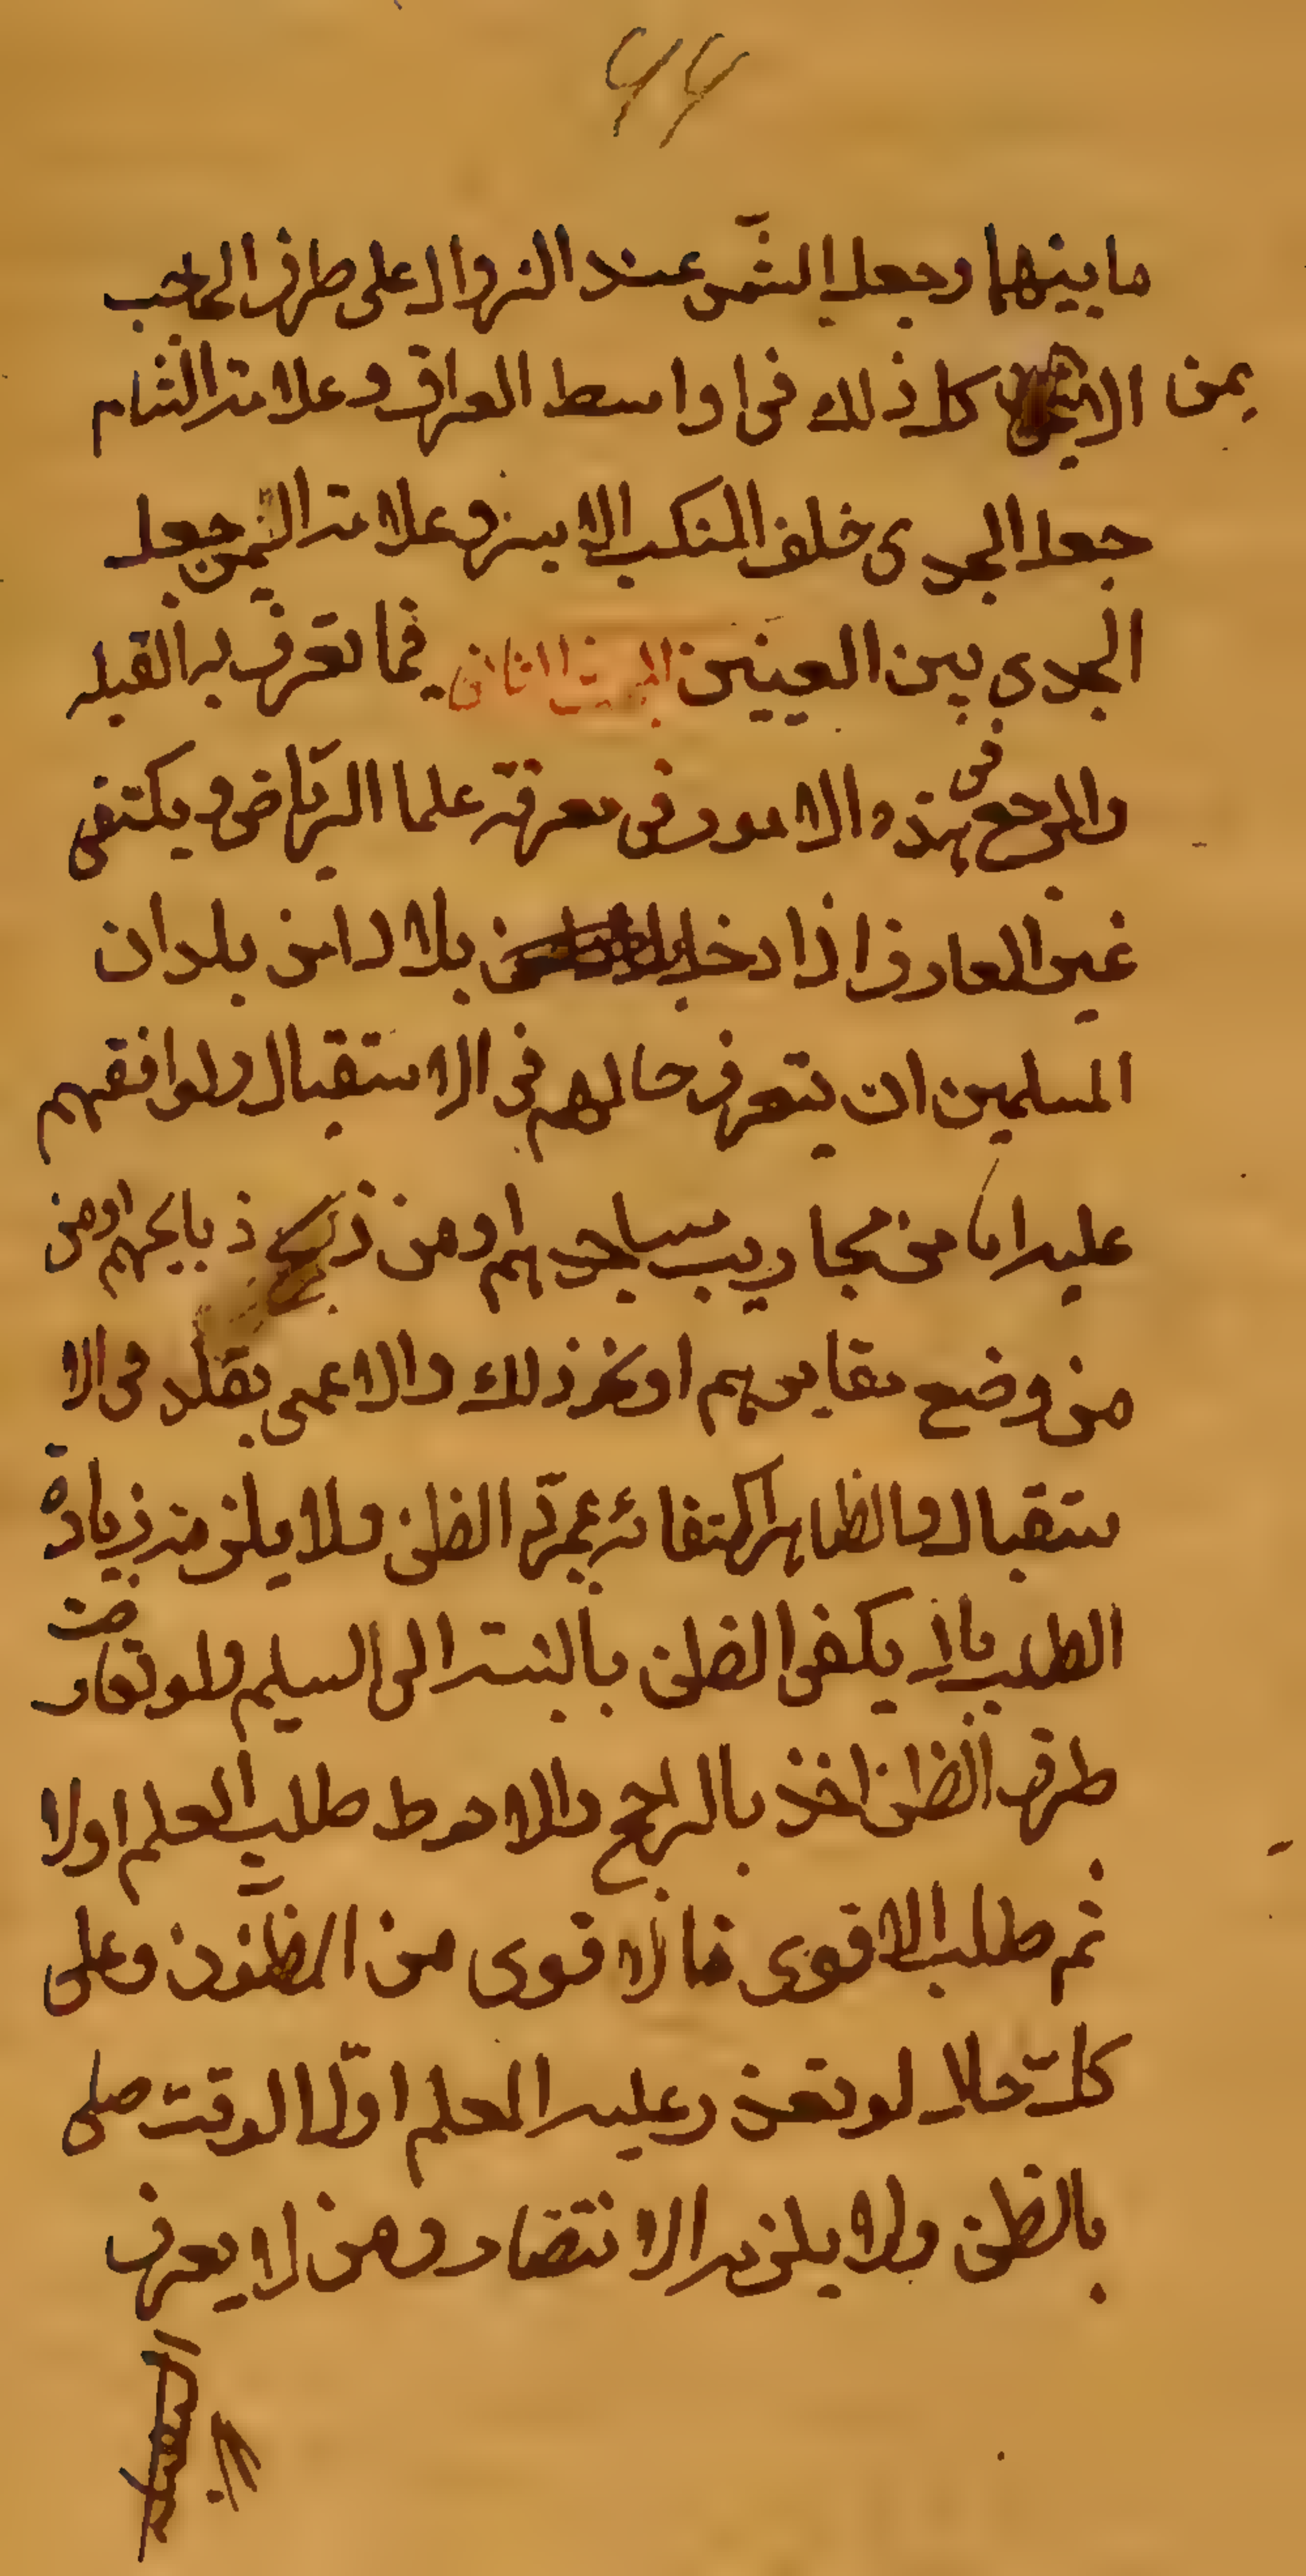 ۴۴
ما بينهما وجعل الشمس عند الزوال على طرف الحاجب
يمن الا كل ذلك فى اواسط العراق وعلامته الشام
جعل الجدى خلف المنكب الايسر وعلامته اليمن جعل
الجدى بين العينين البحث الثانى فيما تعرف به القبله
والمرجع فى هذه الامور فى معرفته علما الرياض ويكتفى
غير العارف اذا دخل بلادا من بلدان
المسلمين ان يتعرف حالهم فى الاستقبال ولوافقهم
عليه اما من محاريب مساجدهم او من ذبح ذبايحهم او من
من وضع مقابرهم او نحو ذلك والاعمى يقلد فى الا
ستقبال والظاهر اكتفائه بمجرد الظن ولا يلزمه زيادة
الطلب بل يكفى الظن بالنسبة الى السليم ولو تعارضت
طرق الظن اخذ بالراجح والاحوط طلب العلم اولا
ثم طلب الاقوى فالاقوى من الظنون وعلى
كل حال لو تعذر عليه العلم اول الوقت صلى
بالظن ولا يلزمه الانتضار ومن لا يعرف